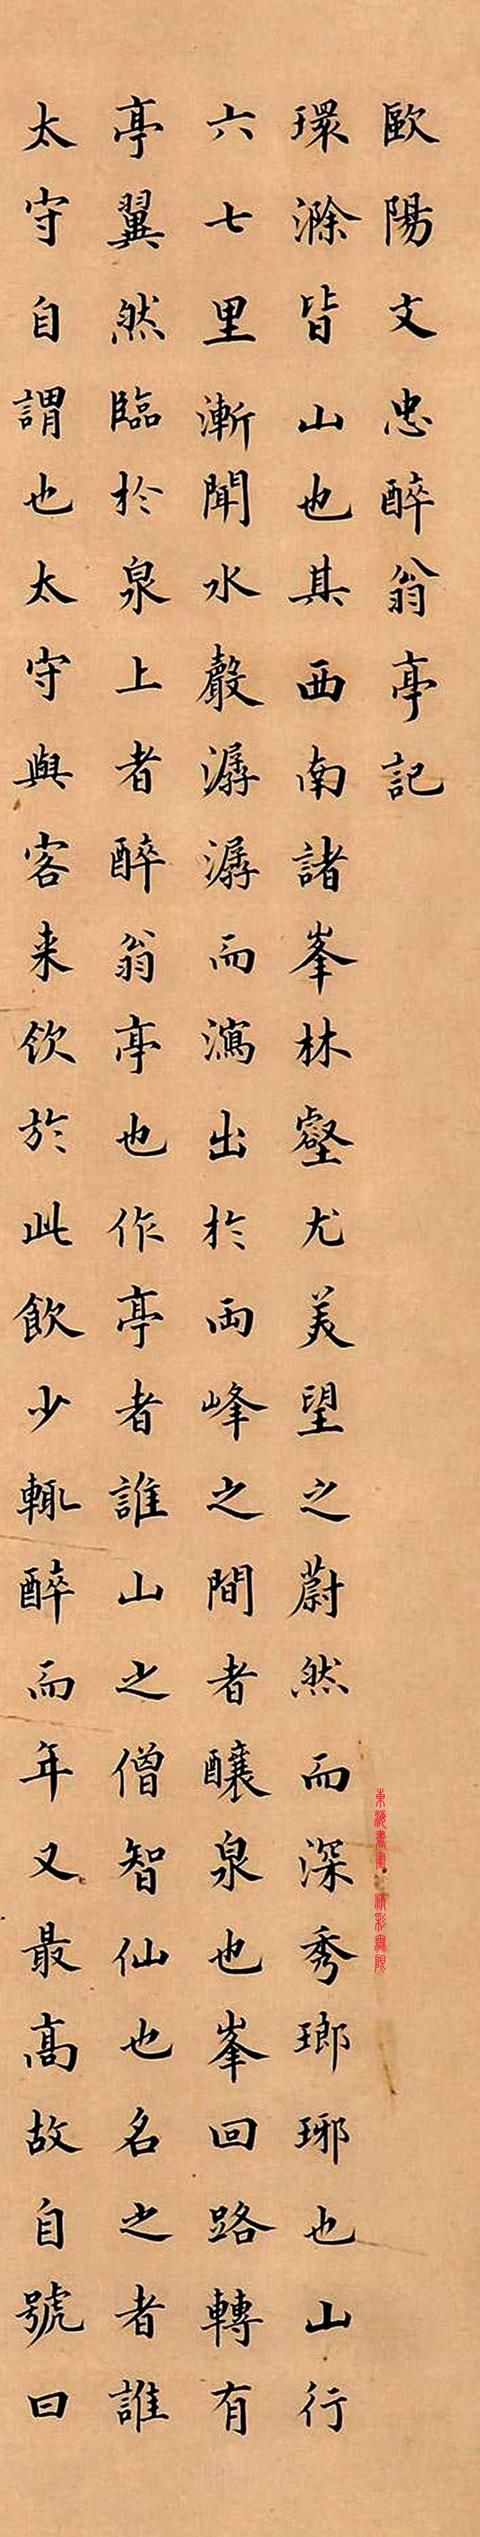 歐陽文忠醉翁亭記
環滁皆山也其西南諸峯林壑尤美望之蔚然而深秀瑯琊也山行
六七里漸聞水聲潺潺而瀉出於兩峰之間者釀泉也峯回路轉有
亭翼然臨於泉上者醉翁亭也作亭者誰山之僧智仙也名之者誰
太守自謂也太守與客来飲於此飲少輒醉而年又最高故自號曰